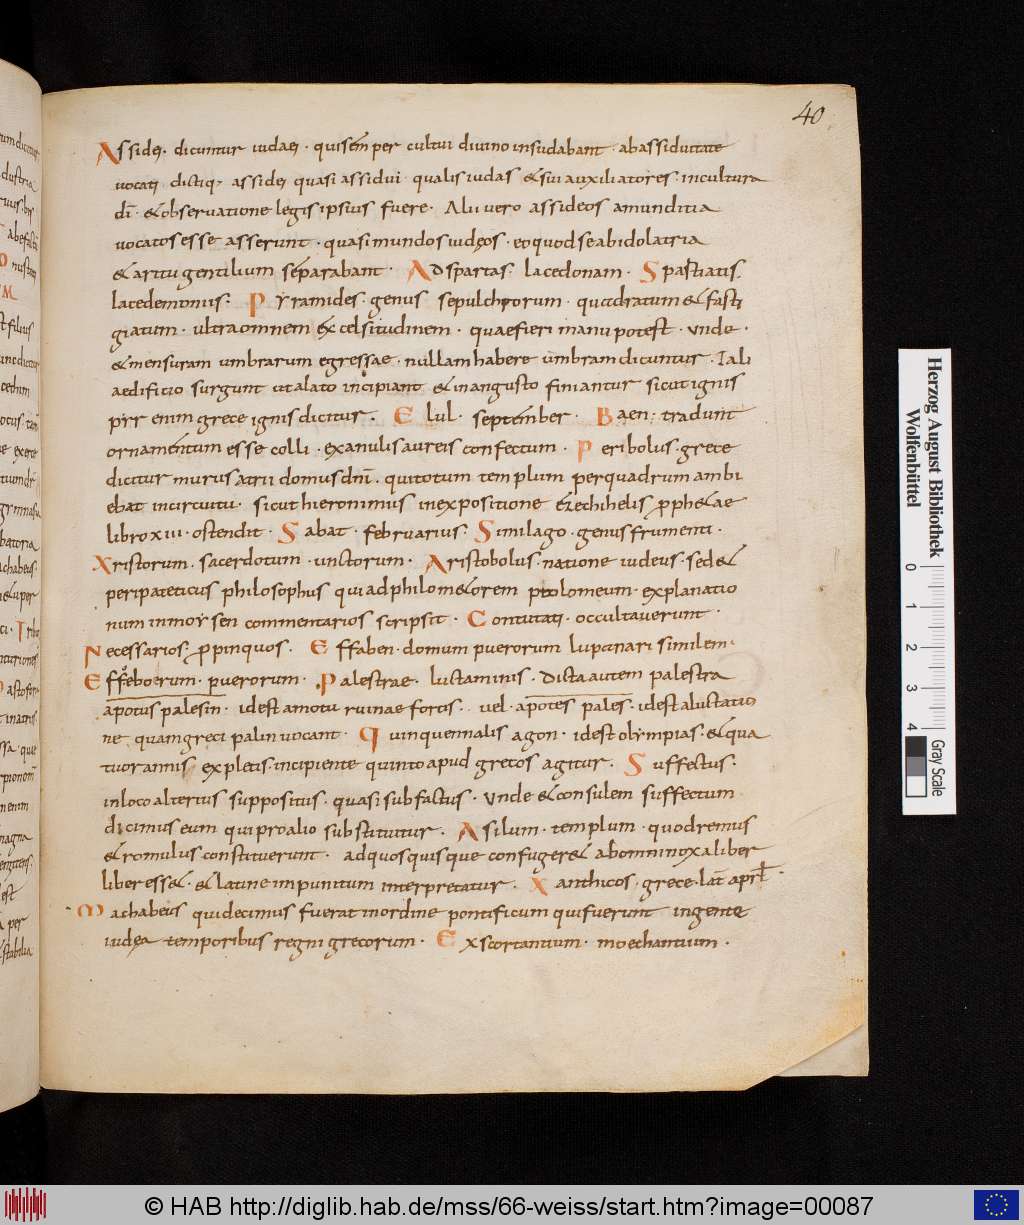 40
Assidei. dicuntur iudaei · qui semper cultui diuino insudabant · ab assiduitate
uocati dictiq; assidei quasi assidui · qualis iudas & sui auxiliatores · in cultura
di · & obseruatione legis ipsius fuere · Alii uero assideos a munditia
uocatos esse asserunt · quasi mundos iudęos · eo quod se ab idolatria
& a ritu gentilium separabant · Ad spartas · lacedonam · Spartiatis.
lacedemoniis: Pyramides · genus sepulchrorum · quadratum & fasti
giatum · ultra omnem excelsitudinem · quae fieri manu potest · unde ·
& mensuram umbrarum egressae · nullam habere umbram dicuntur · Tali
aedificio surgunt ut a lato incipiant & in angusto finiantur sicut ignis
pyr enim grece ignis dicitur. Elul · september · Baen: tradunt
ornamentum esse colli · ex anulis aureis confectum · Peribolus · grece
dicitur murus atrii domus dni. qui totum templum per quadrum ambi
ebat in circuitu · sicut hieronimus in expositione ezechihelis prophetae
libro xiii · ostendit · Sabat · februarius · Similago · genus frumenti ·
Xristorum · sacerdotum · unctorum · Aristobolus · natione iudeus · sed &
peripateticus philosophus qui ad philom&orem ptolomeum · explanatio
num in moysen commentarios scripsit · Contutati · occultauerunt ·
Necessarios · propinquos · Effaben · domum puerorum lupanari similem ·
Effeboerum · puerorum · Palestrae · luctaminis · dicta autem palestra
apotus palesin · idest a motu ruinae fortis · uel · apotes pales · idest a luctatio
ne quam greci palin uocant · Quinquennalis agon · idest olympias · & qua
tuor annis expletis · incipiente quinto apud grecos agitur. Suffectus:
in loco alterius suppositus · quasi subfactus · unde & consulem suffectum ·
dicimus eum qui pro alio substituitur. Asilum · templum · quod remus
& romulus constituerunt · ad quos quisque confuger& ab omni noxa liber
liber ess& · & latine impunitum interpretatur. Xanthicos · grece · lat aprl ·
Machabeus qui decimus fuerat in ordine pontificum qui fuerunt in gente
iudęa temporibus regni grecorum · Exscortantium · moechantium ·
Herzog August Bibliothek
Wolfenbüttel
0 1 2 3 4
Gray Scale
© HAB http://diglib.hab.de/mss/66-weiss/start.htm?image=00087